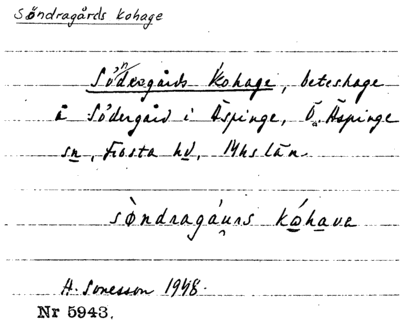 Söndragårds Kohage
Söndragårds Kohage, beteshage
å Södergård i Äspinge, Ö. Äspinge
sn, Frosta hd, Mhs län.
sòndragáu̯rs kóhava
H. Sonesson 1948.
Nr 5943.